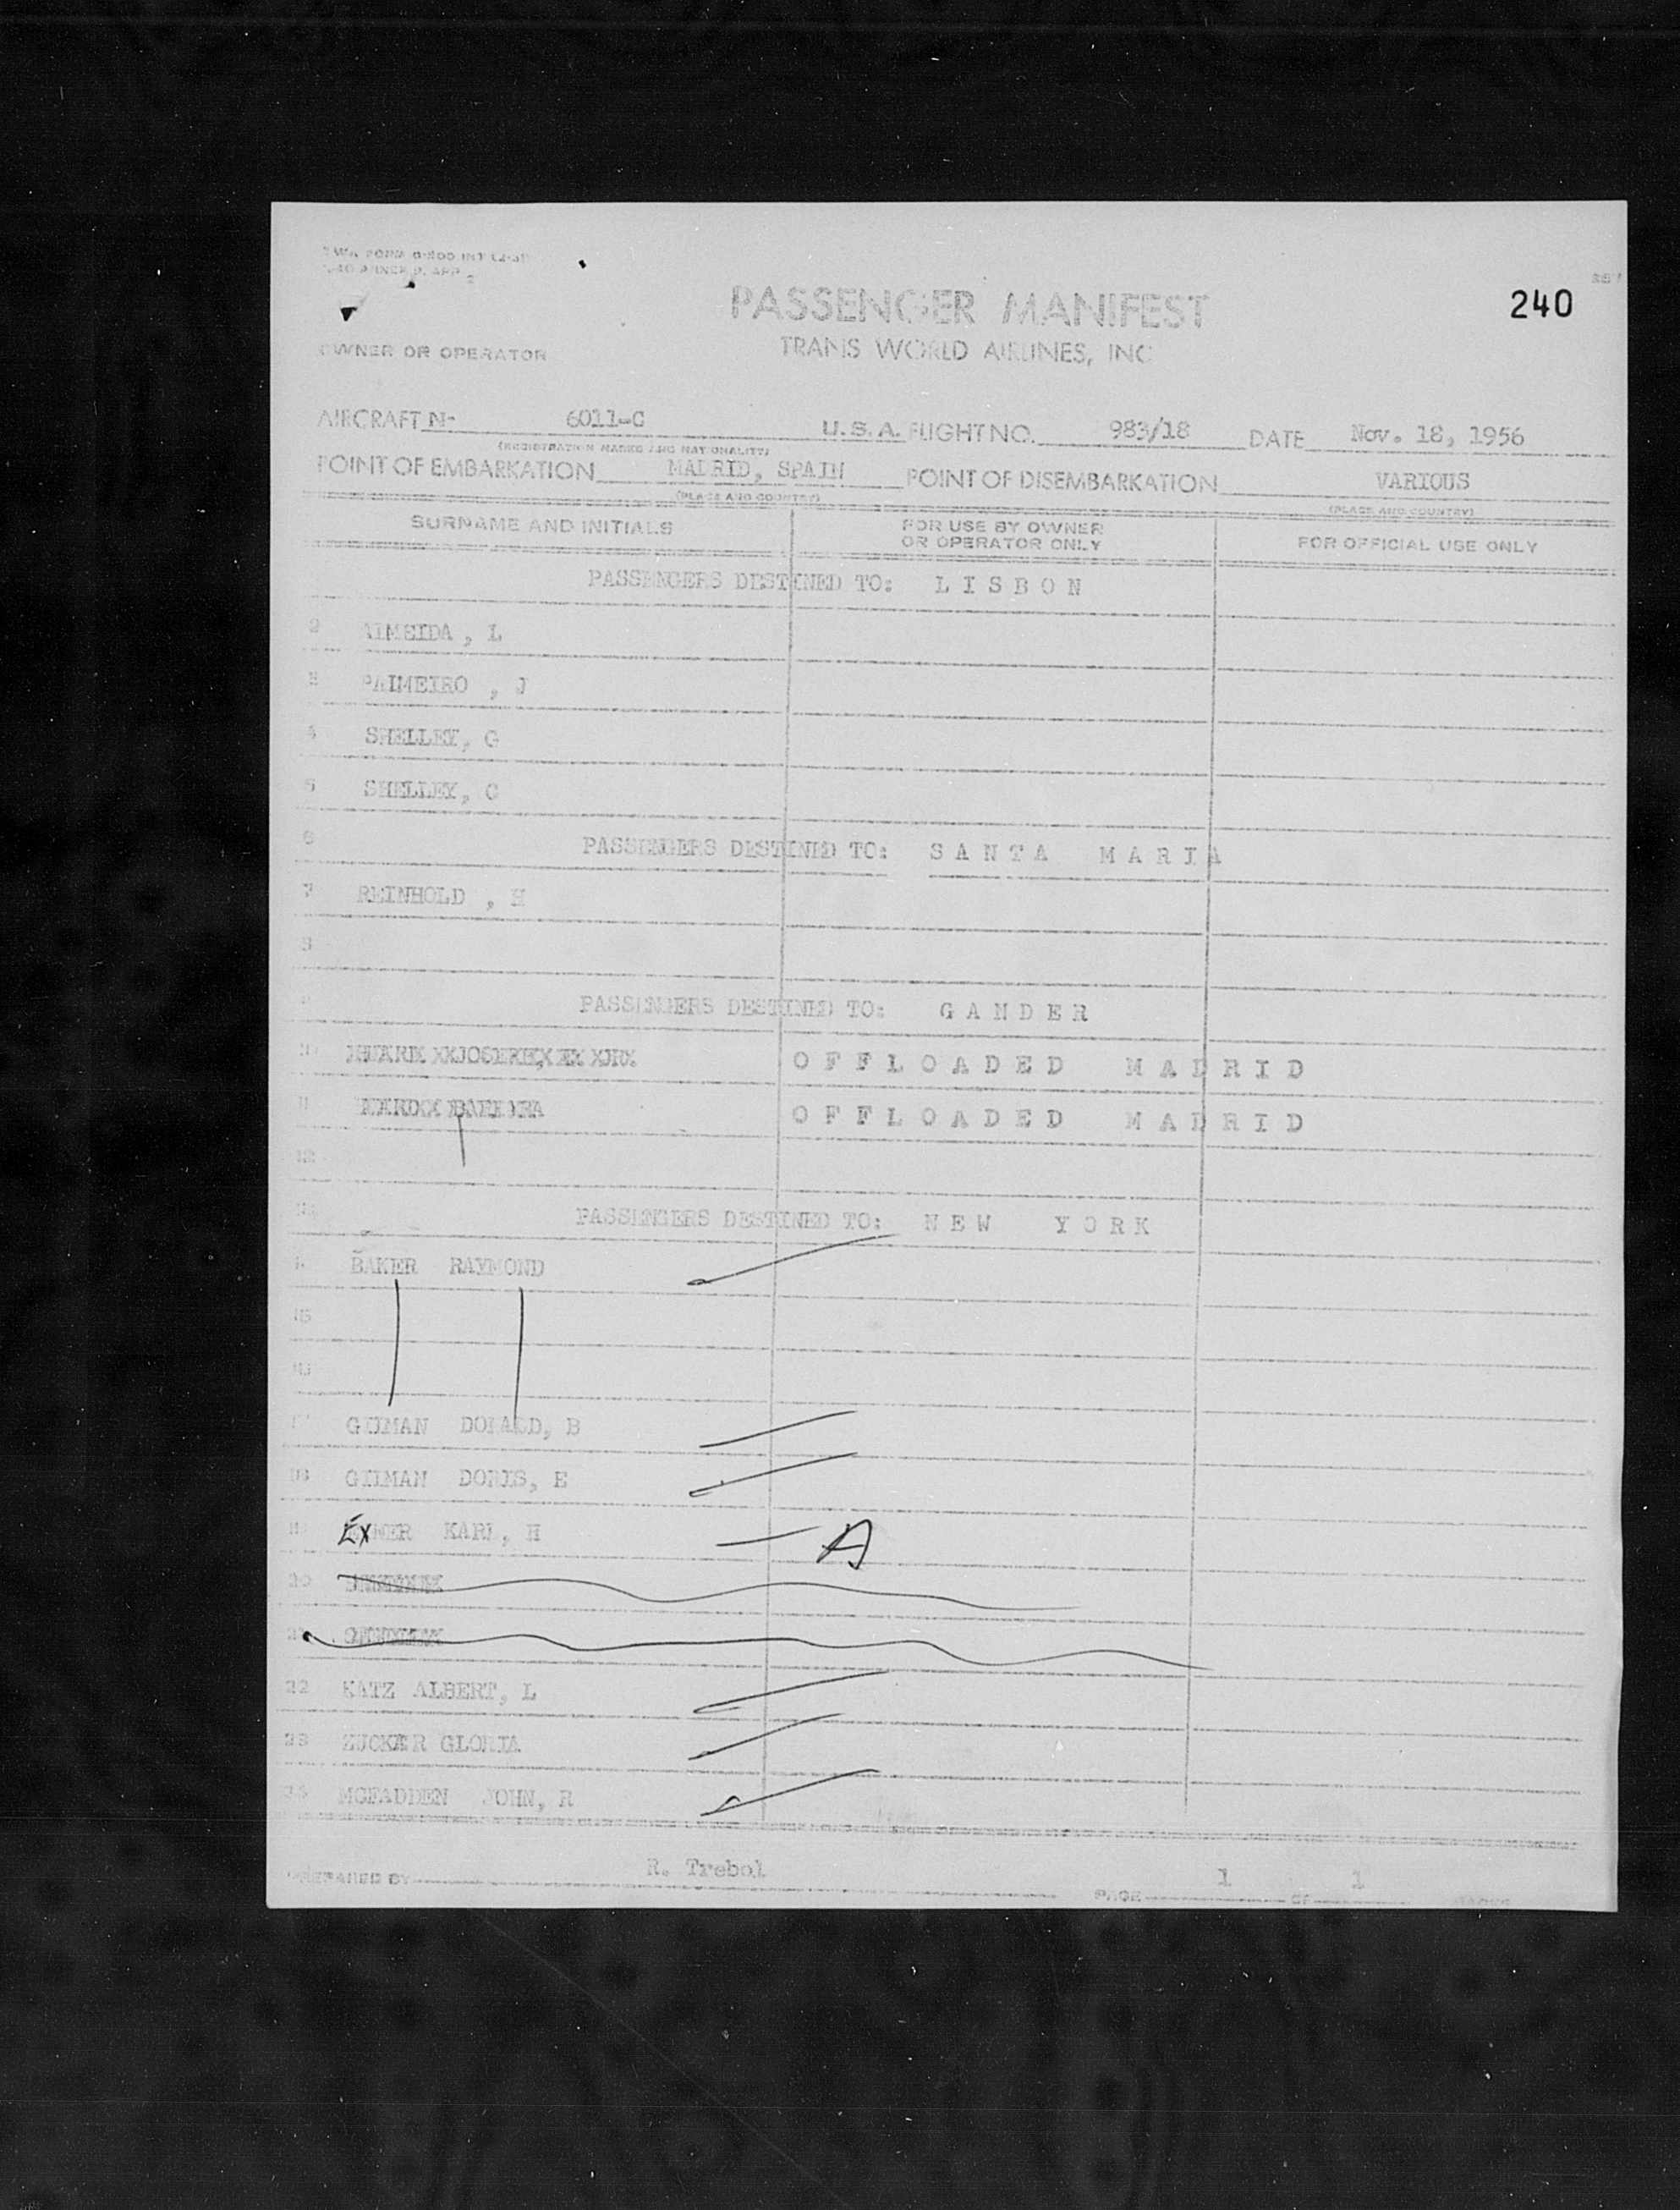 240
PASSENGER MANIFEST
TRANS WORLD AIRLINES, INC
OWNER OR OPERATOR
AIRCRAFT N- 6011-C U.S.A. FLIGHT NO. 983/18 DATE Nov. 18, 1956
(REGISTRATION MARKS AND NATIONALITY)
POINT OF EMBARKATION MADRID, SPAIN POINT OF DISEMBARKATION VARIOUS
(PLACE AND COUNTRY) (PLACE AND COUNTRY)
SURNAME AND INITIALS FOR USE BY OWNER OR OPERATOR ONLY FOR OFFICIAL USE ONLY
PASSENGERS DESTINED TO: LISBON
2 ALMEIDA, L
3 PALMEIRO, J
4 SHELLEY, G
5 SHELLEY, C
6 PASSENGERS DESTINED TO: SANTA MARIA
7 REINHOLD, H
8
9 PASSENGERS DESTINED TO: GANDER
10 OFFLOADED MADRID
11 OFFLOADED MADRID
12
13 PASSENGERS DESTINED TO: NEW YORK
14 BAKER RAYMOND
15
16
17 GILMAN DONALD, B
18 GILMAN DORIS, E
19 EXNER KARL, H A
20
21
22 KATZ ALBERT, L
23 ZUCKER GLORIA
24 MCFADDEN JOHN, R
PREPARED BY R. Trebol PAGE 1 OF 1 PAGES